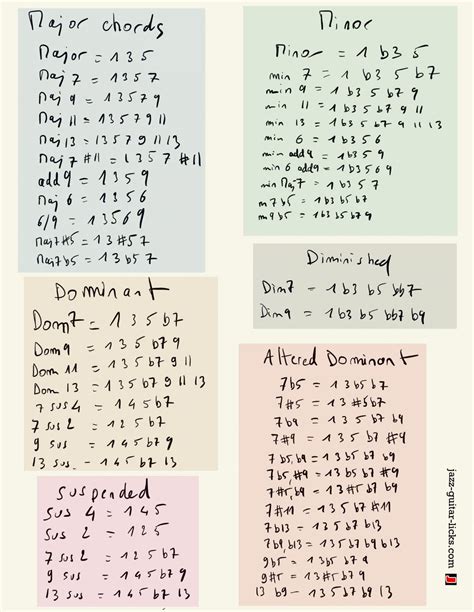 Major chords
Major = 1 3 5
Maj 7 = 1 3 5 7
Maj 9 = 1 3 5 7 9
Maj 11 = 1 3 5 7 9 11
Maj 13 = 1 3 5 7 9 11 13
Maj 7 #11 = 1 3 5 7 #11
add9 = 1 3 5 9
Maj 6 = 1 3 5 6
6/9 = 1 3 5 6 9
Maj7#5 = 1 3 #5 7
Maj7b5 = 1 3 b5 7
Dominant
Dom7 = 1 3 5 b7
Dom9 = 1 3 5 b7 9
Dom 11 = 1 3 5 b7 9 11
Dom 13 = 1 3 5 b7 9 11 13
7 sus4 = 1 4 5 b7
7 sus 2 = 1 2 5 b7
9 sus = 1 4 5 b7 9
13 sus - 1 4 5 b7 9 13
Suspended
sus 4 = 1 4 5
sus 2 = 1 2 5
7 sus 2 = 1 2 5 b7
9 sus = 1 4 5 b7 9
13 sus = 1 4 5 b7 9 13
Minor
Minor = 1 b3 5
min 7 = 1 b3 5 b7
min 9 = 1 b3 5 b7 9
min 11 = 1 b3 5 b7 9 11
min 13 = 1 b3 5 b7 9 11 13
min 6 = 1 b3 5 6
min add9 = 1 b3 5 9
min 6 add9 = 1 b3 5 6 9
min Maj7 = 1 b3 5 7
m7b5 = 1 b3 b5 b7
m9b5 = 1 b3 b5 b7 9
Diminished
Dim7 = 1 b3 b5 bb7
Dim9 = 1 b3 b5 bb7 b9
Altered Dominant
7b5 = 1 3 b5 b7
7#5 = 1 3 #5 b7
7b9 = 1 3 5 b7 b9
7#9 = 1 3 5 b7 #9
7b5,b9 = 1 3 b5 b7 b9
7b5,#9 = 1 3 b5 b7 #9
7#5,b9 = 1 3 #5 b7 b9
7#5,#9 = 1 3 #5 b7 #9
7#11 = 1 3 5 b7 #11
7b13 = 1 3 5 b7 b13
7b9b13 = 1 3 5 b7 b9 b13
9b5 = 1 3 b5 b7 9
9#5 = 1 3 #5 b7 9
13 b9 - 1 3 5 b7 b9 13
jazz-guitar-licks.com